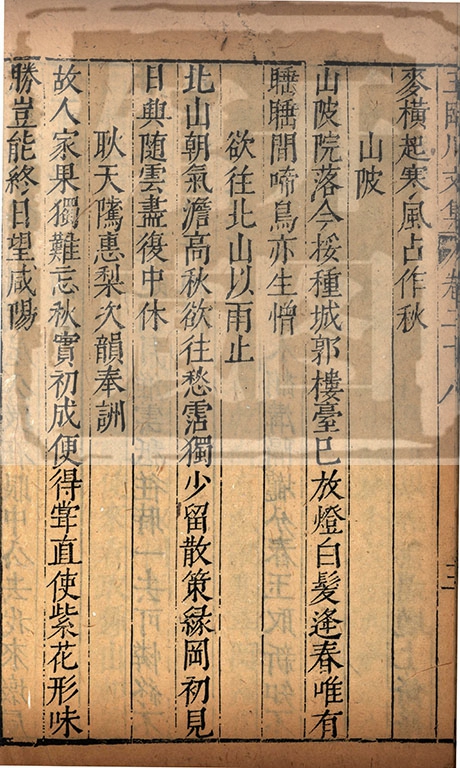 王臨川文集 卷二十八 三
麥橫起寒風占作秋
山陂
山陂院落今挼種城郭樓臺已放燈白髮逢春唯有
睡睡聞啼鳥亦生憎
欲往北山以雨止
北山朝氣澹高秋欲往愁霑獨少留散策緣岡初見
日興隨雲盡復中休
耿天騭惠梨次韻奉詶
故人家果獨難忘秋實初成便得甞直使紫花形味
勝豈能終日望咸陽